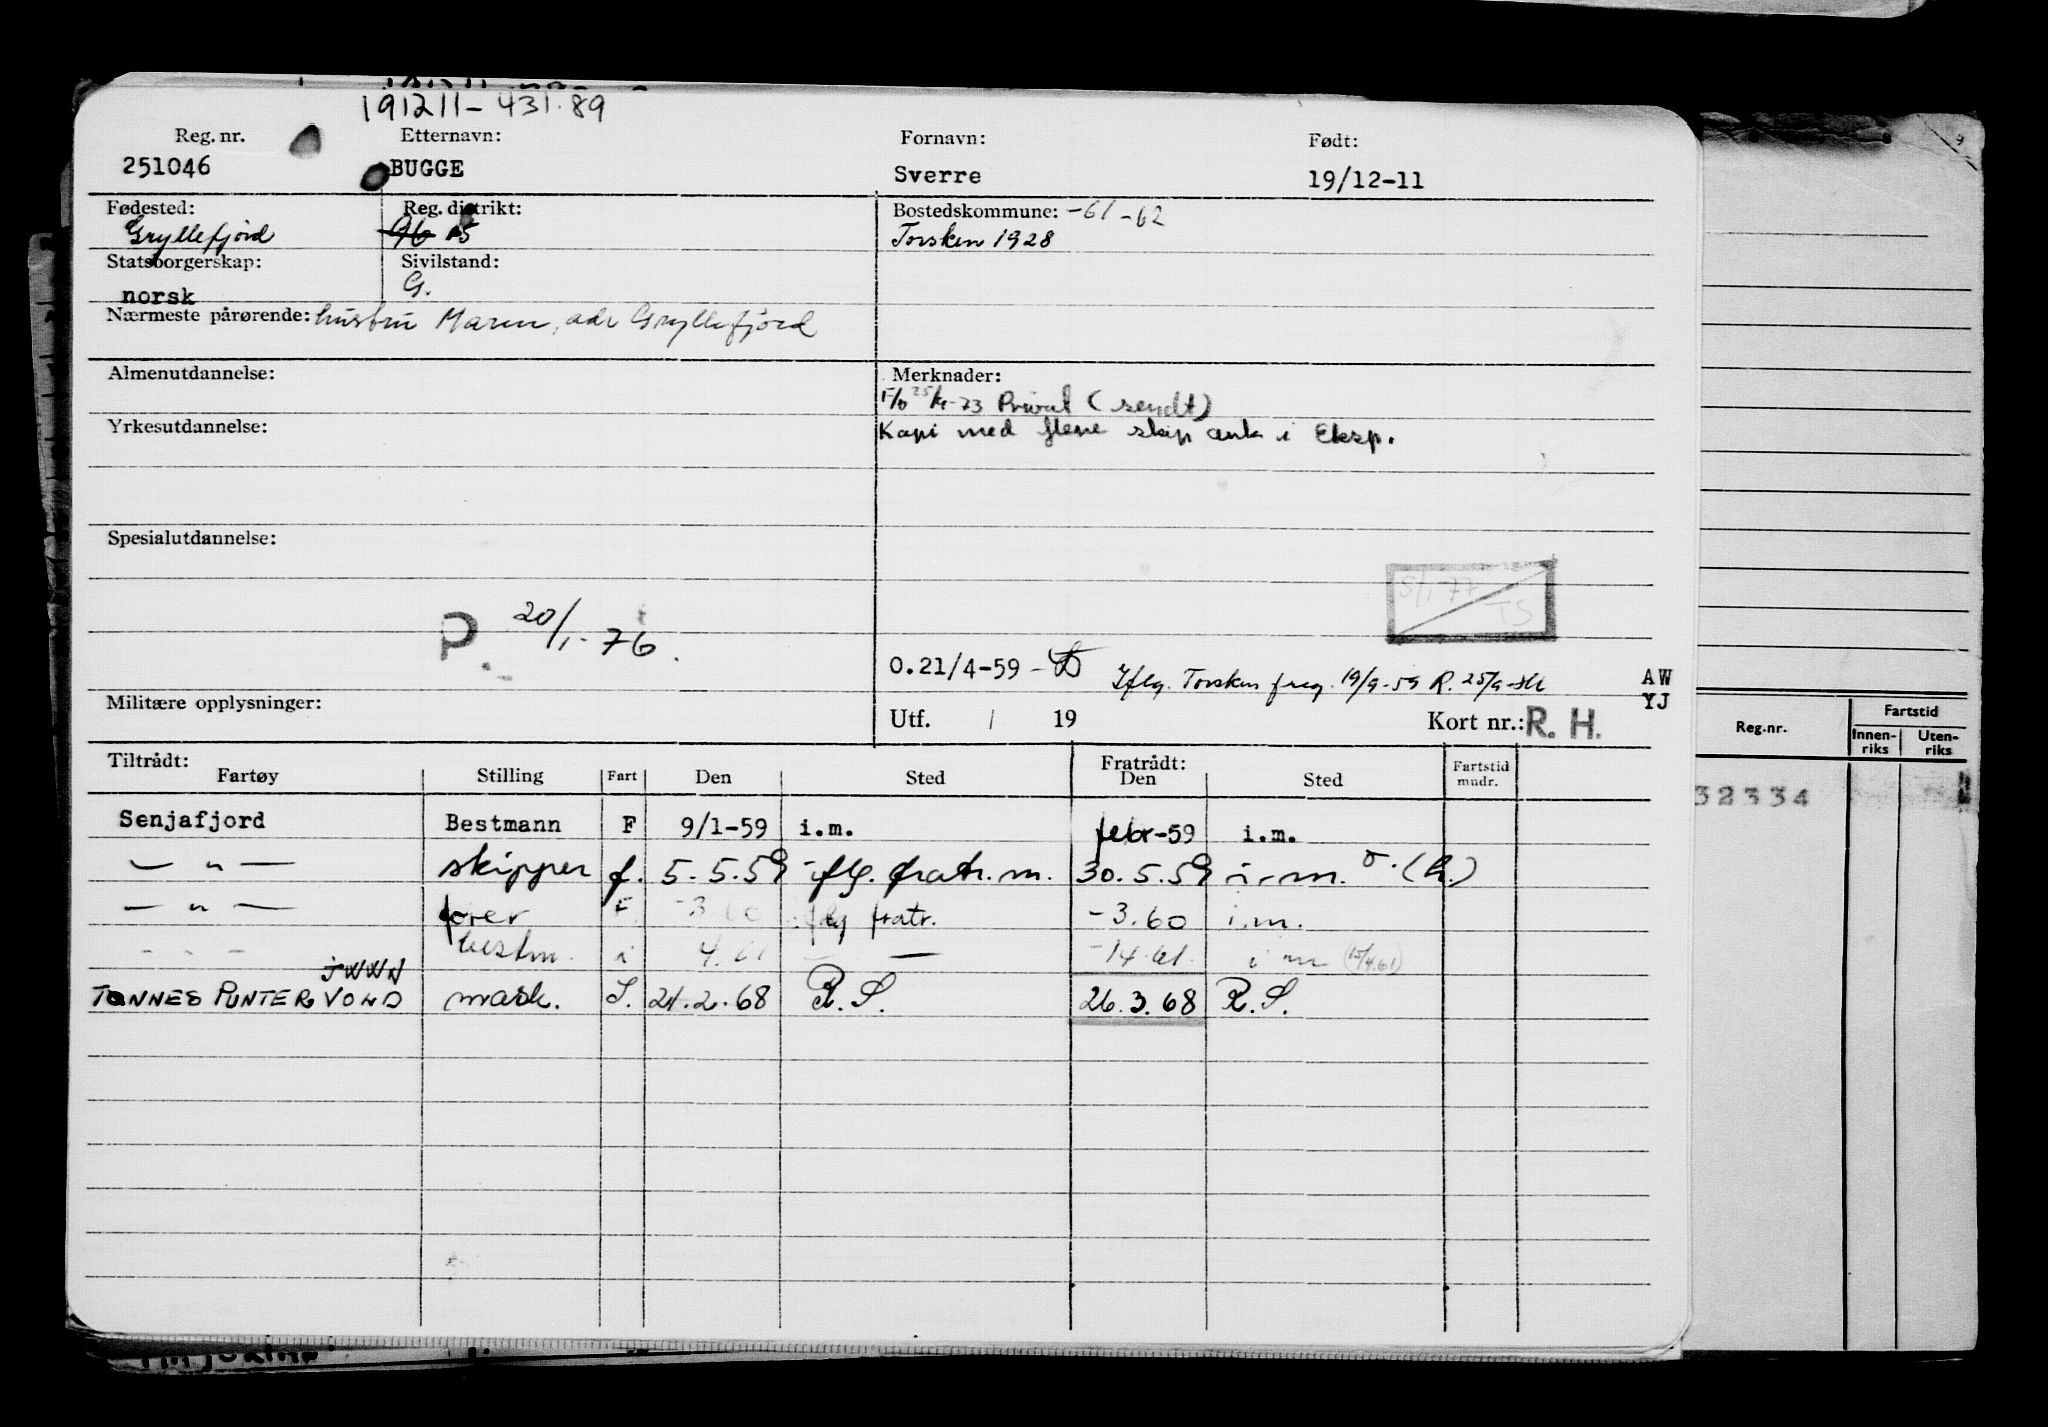 191211-431.89
Reg. nr. Etternavn: Fornavn: Født:
251046 BUGGE Sverre 19/12-11
Fødested: Reg. distrikt: Bostedskommune: -61 -62
Gryllefjord 96 15 Torsken 1928
Statsborgerskap: Sivilstand:
norsk G.
Nærmeste pårørende: hustru Maren, adr Gryllefjord
Almenutdannelse: Merknader:
-73 Privat (sendt)
Yrkesutdannelse: Kopi med flere skip ank i Eksp.
Spesialutdannelse:
S/1 77
TS
P. 20/1-76.
O.21/4-59 - Iflg. Torsken freg. 19/9-59 R. 25/9- AW
YJ
Militære opplysninger: Utf. / 19 Kort nr.: R. H.
Tiltrådt: Fratrådt:
Fartøy Stilling Fart Den Sted Den Sted Fartstid mndr.
Senjafjord Bestmann F 9/1-59 i.m. febr-59 i.m.
— " — skipper f. 5.5.59 iflg. fratr.m. 30.5.59 i.m.
— " — fører F. -3.60 iflg fratr. -3.60 i.m.
- " - bestm. i 4.61 — — -14.61. i m (15/4.61)
JWWN
TØNNES PUNTERVOLD mask. S. 24.2.68 R.S. 26.3.68 R.S.
Reg.nr. Fartstid
Innen-riks Uten-riks
32334